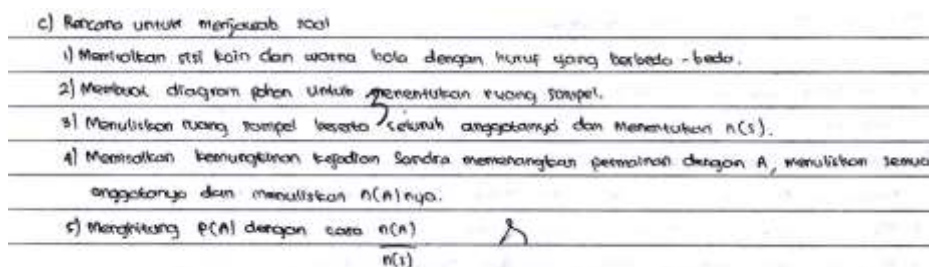 c) Rencana untuk menjawab soal
1) Memisalkan sisi koin dan warna bola dengan huruf yang berbeda-beda.
2) Membuat diagram pohon untuk menentukan ruang sampel.
3) Menuliskan ruang sampel beserta seluruh anggotanya dan menentukan n(S).
4) Memisalkan kemungkinan kejadian Sandra memenangkan permainan dengan A, menuliskan semua
anggotanya dan menuliskan n(A) nya.
5) Menghitung P(A) dengan cara n(A)
n(S)